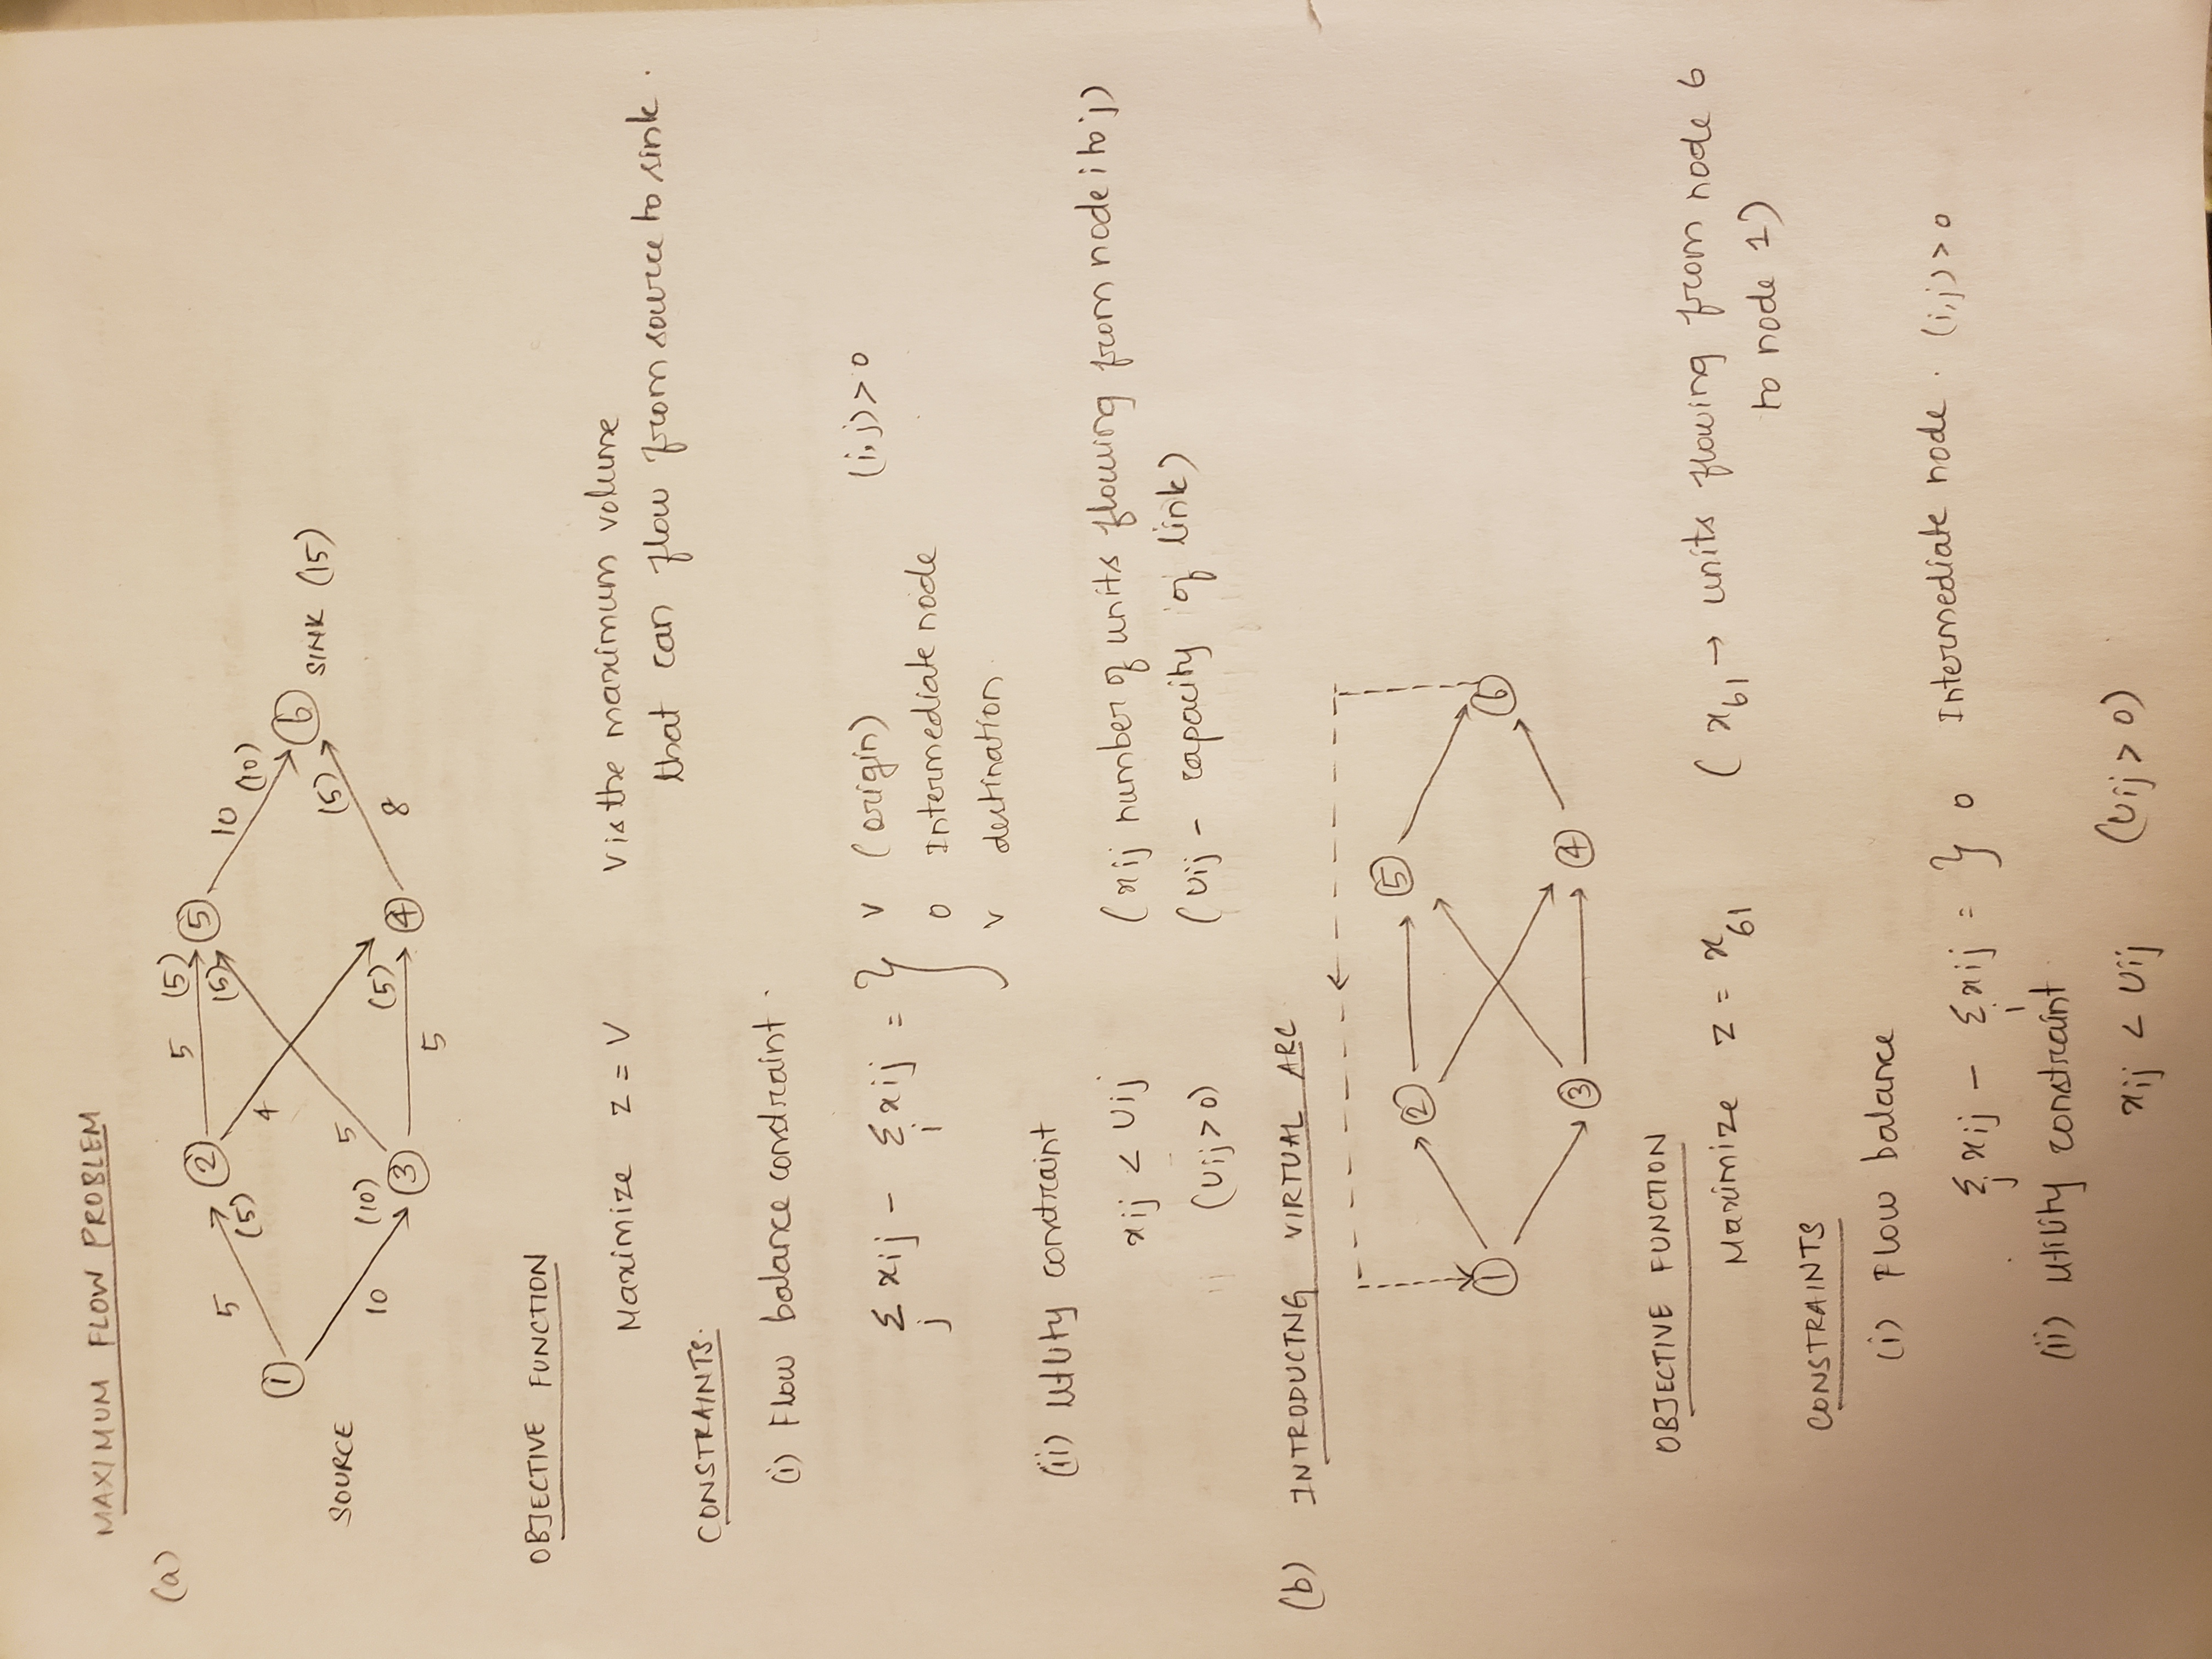 MAXIMUM FLOW PROBLEM
(a)
5 (5)
② ⑤
5 (5) (5) 10 (10)
4
① ⑥ SINK (15)
SOURCE
(5)
10 (10) 5 (5) 8
③ ④
5
OBJECTIVE FUNCTION
Maximize z = V V is the maximum volume
that can flow from source to sink.
CONSTRAINTS.
(i) Flow balance constraint.
Σ xij - Σ xij = } v (origin) (i,j) > 0
j i
0 Intermediate node
v destination
(ii) Utlity constraint
xij < Uij (xij number of units flowing from node i to j)
(Uij > 0) (Uij - capacity of link)
(b) INTRODUCTNG VIRTUAL ARC
② ⑤
① ⑥
③ ④
OBJECTIVE FUNCTION
Maximize z = x61 (x61 → units flowing from node 6
to node 1)
CONSTRAINTS
(i) Flow balance
Σ xij - Σ xij = } 0 Intermediate node. (i,j) > 0
j i
(ii) Utility constraint
xij < Uij (Uij > 0)